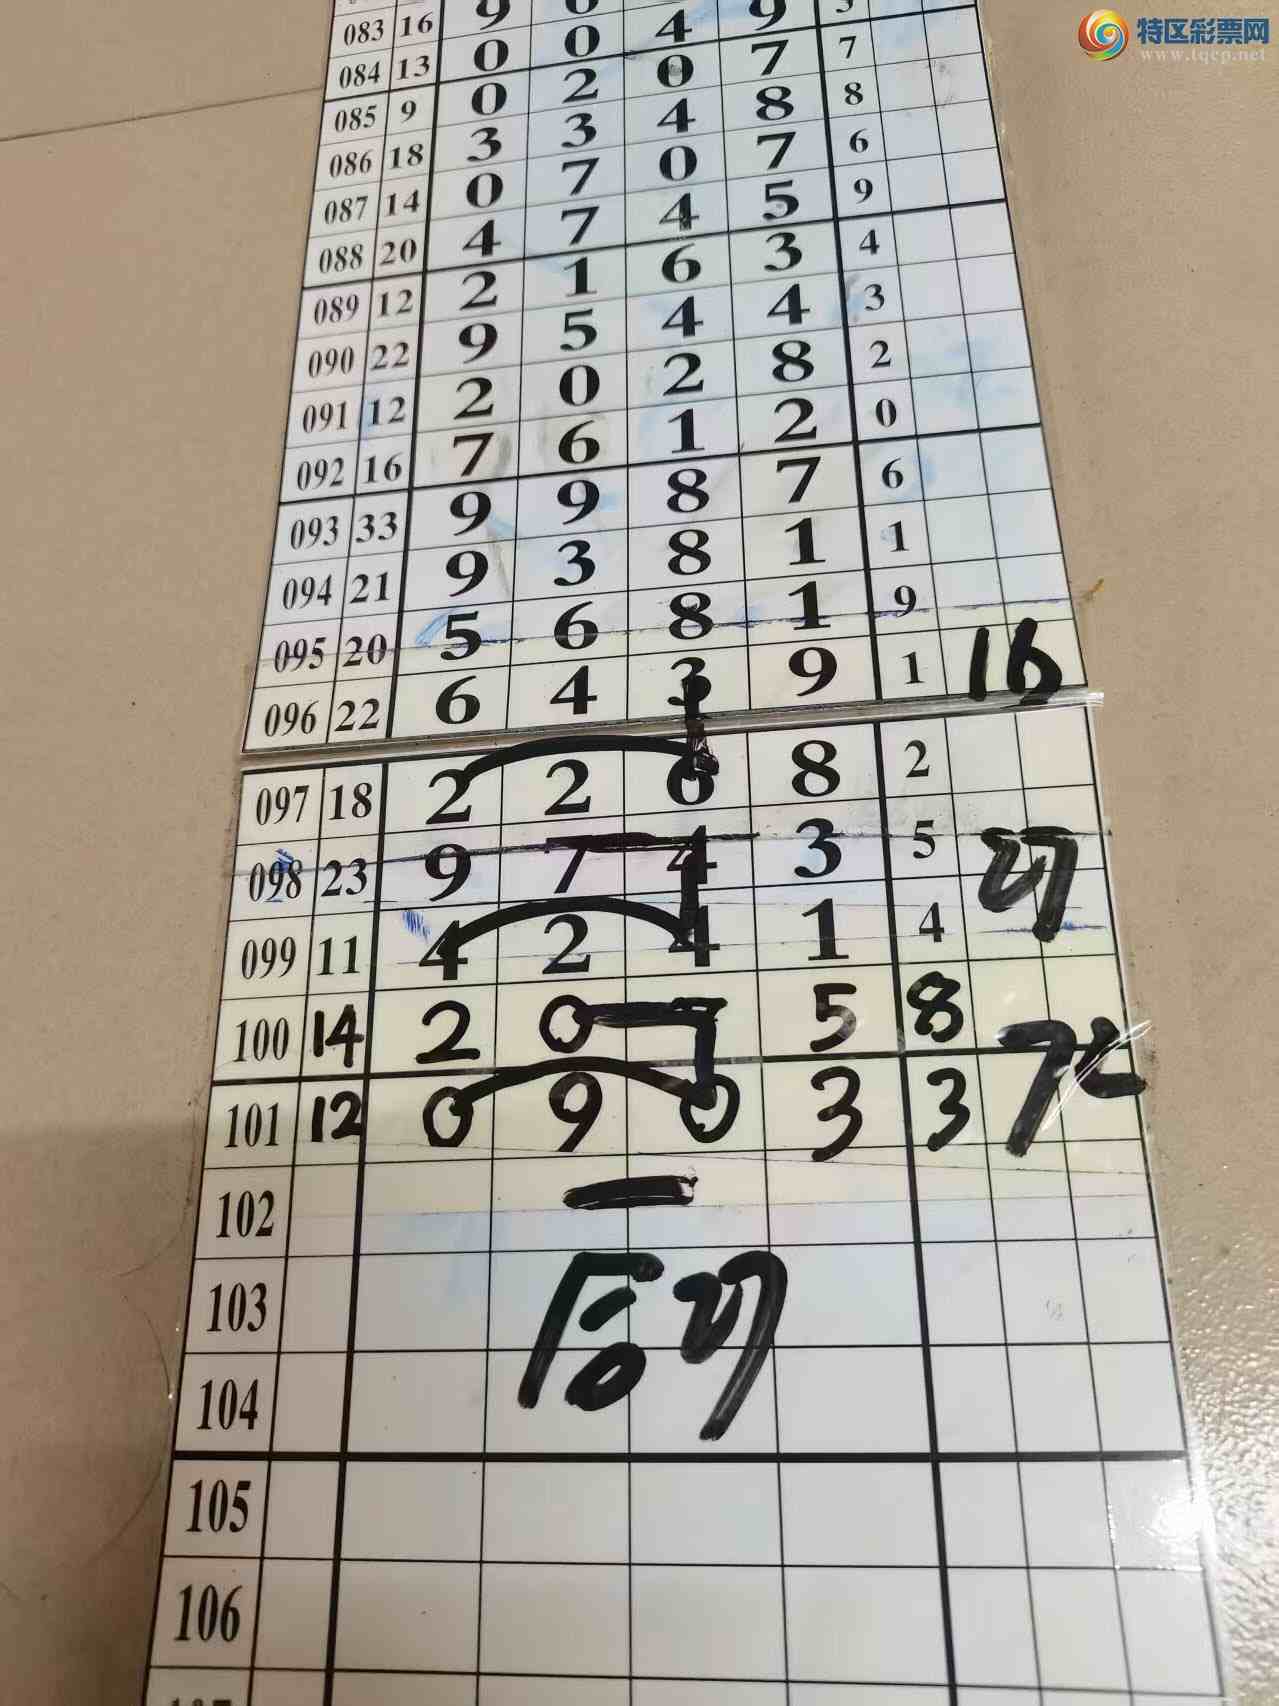 特区彩票网
www.tqcp.net
083 16 9 0 4 9
084 13 0 0 0 7 7
085 9 0 2 4 8 8
086 18 3 3 0 7 6
087 14 0 7 4 5 9
088 20 4 7 6 3 4
089 12 2 1 4 4 3
090 22 9 5 2 8 2
091 12 2 0 1 2 0
092 16 7 6 8 7 6
093 33 9 9 8 1 1
094 21 9 3 8 1 9
095 20 5 6 3 9 1
096 22 6 4 16
097 18 2 2 6 8 2
098 23 9 7 4 3 5
099 11 4 2 4 1 4
100 14 2 0 7 5 8
101 12 0 9 0 3 3
102
103
104
105
106